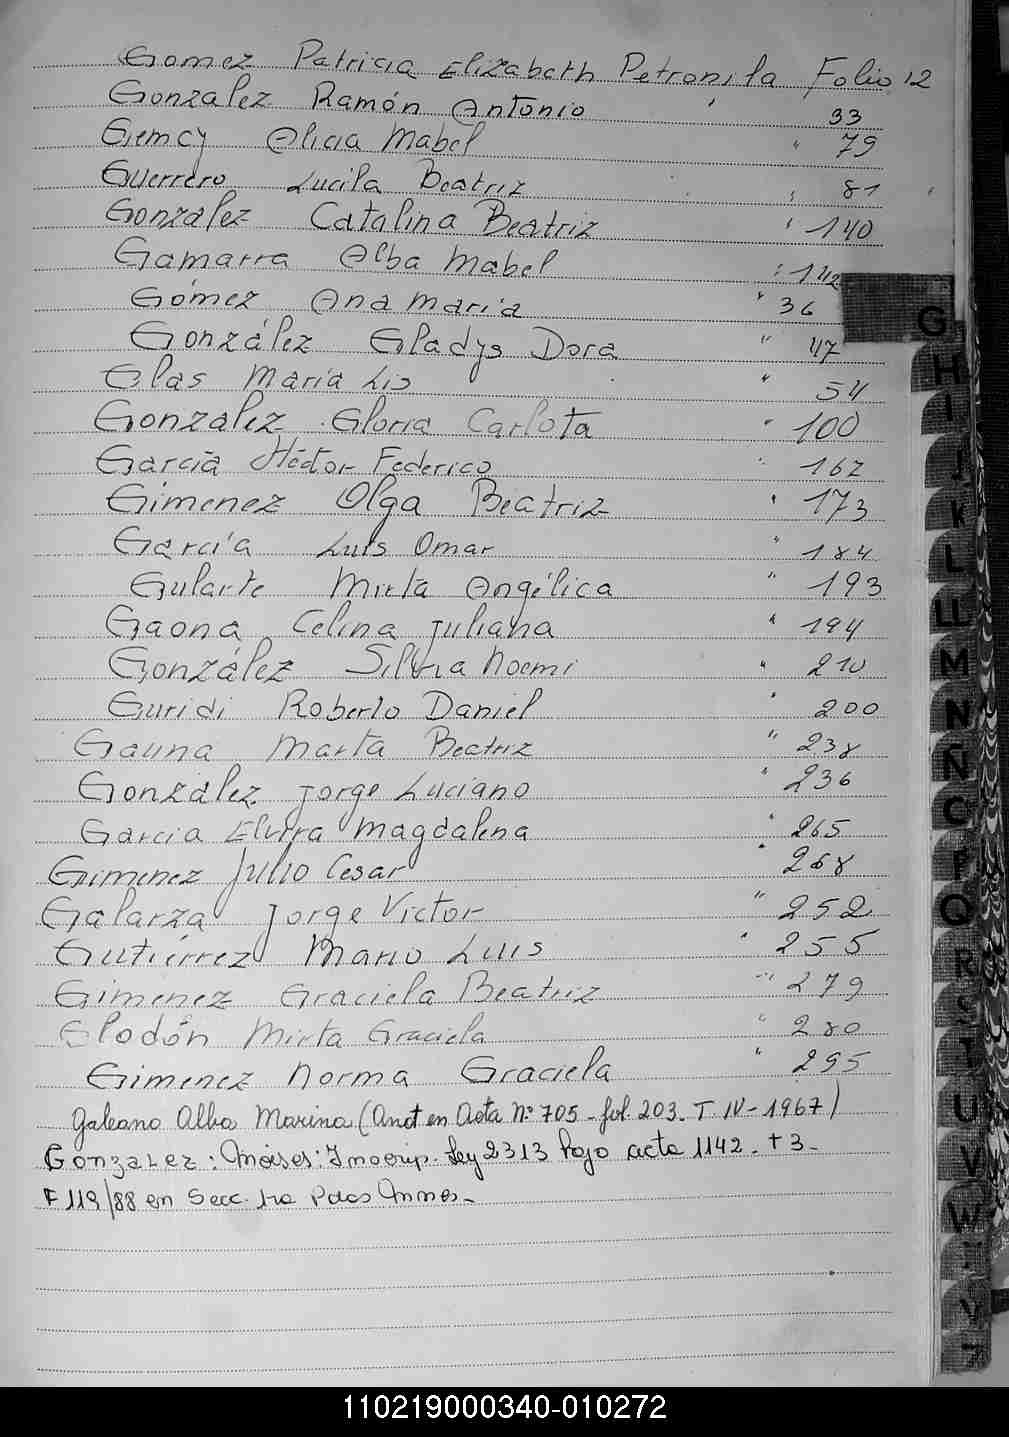 Gomez Patricia Elizabeth Petronila Folio 12
Gonzalez Ramón Antonio " 33
Alicia Mabel " 79
Guerrero Lucila Beatriz " 81
Gonzalez Catalina Beatriz " 140
Gamarra Alba Mabel " 142
Gómez Ana María " 36
González Gladys Dora " 47
Glas Maria Lis " 54
Gonzalez Gloria Carlota " 100
Garcia Héctor Federico " 167
Gimenez Olga Beatriz " 173
García Luis Omar " 184
Gularte Mirta Angélica " 193
Gaona Celina Juliana " 194
González Silvia Noemi " 210
Guridi Roberto Daniel " 200
Gauna Marta Beatriz " 238
González Jorge Luciano " 236
Garcia Elvira Magdalena " 265
Gimenez Julio Cesar " 268
Galarza Jorge Victor " 252
Gutiérrez Mario Luis " 255
Gimenez Graciela Beatriz " 279
Glodón Mirta Graciela " 280
Gimenez Norma Graciela " 295
Galeano Alba Marina (Anot en Acta Nº 705 - fol. 203. T IV - 1967)
Gonzalez: Moises: Inscrip. Ley 2313 bajo acta 1142. t 3-
F 119/88 en Secc. 1ra Pdos
G
H
I
J
K
L
LL
M
N
Ñ
O
P
Q
R
S
T
U
V
W
110219000340-010272